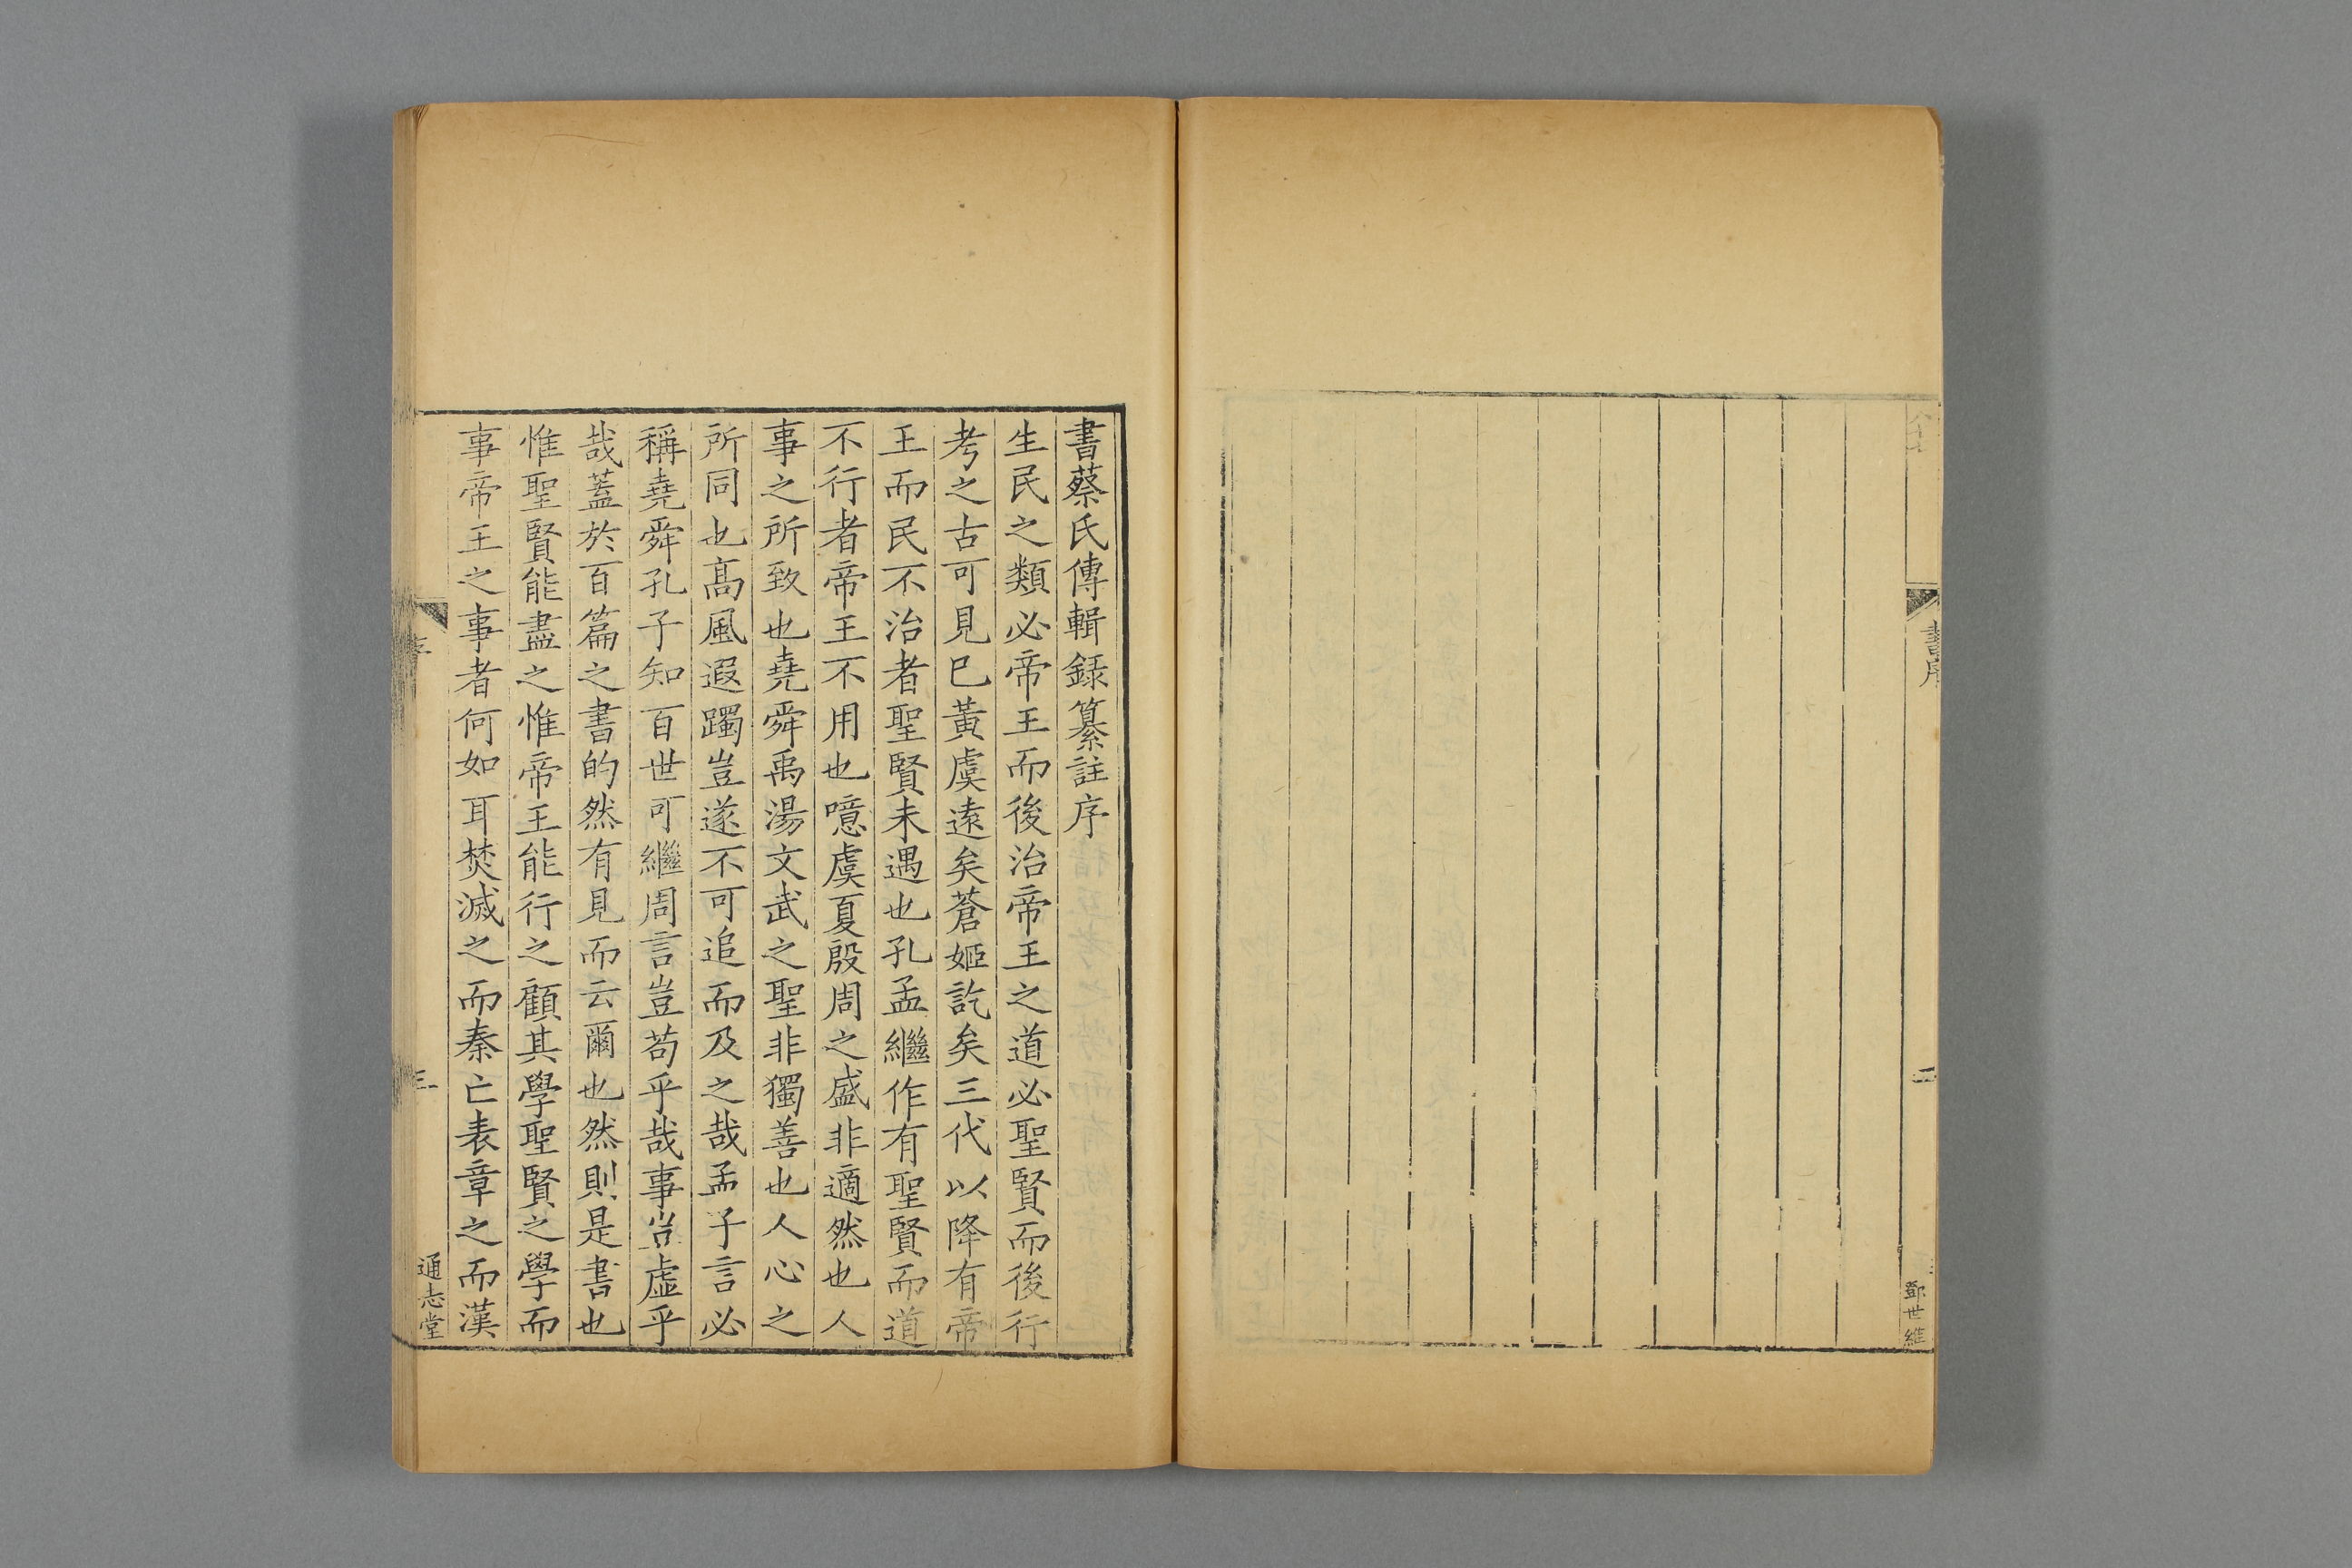 書序
二
鄧世維
書蔡氏傳輯録纂註序
生民之類必帝王而後治帝王之道必聖賢而後行
考之古可見巳黃虞遠矣蒼姬訖矣三代以降有帝
王而民不治者聖賢未遇也孔孟繼作有聖賢而道
不行者帝王不用也噫虞夏殷周之盛非適然也人
事之所致也堯舜禹湯文武之聖非獨善也人心之
所同也髙風遐躅豈遂不可追而及之哉孟子言必
稱堯舜孔子知百世可繼周言豈苟乎哉事豈虛乎
哉蓋於百篇之書的然有見而云爾也然則是書也
惟聖賢能盡之惟帝王能行之顧其學聖賢之學而
事帝王之事者何如耳焚滅之而秦亡表章之而漢
三
通志堂